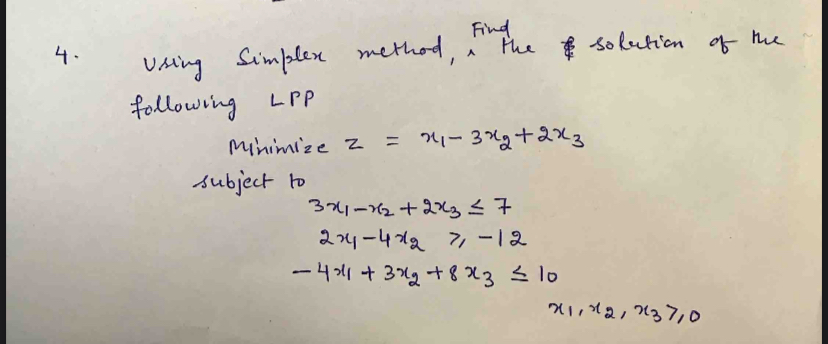 4. Using Simplex method, Find the solution of the
following LPP
Minimize Z = x₁ - 3x₂ + 2x₃
subject to
3x₁ - x₂ + 2x₃ ≤ 7
2x₁ - 4x₂ ≥ -12
-4x₁ + 3x₂ + 8x₃ ≤ 10
x₁, x₂, x₃ ≥ 0